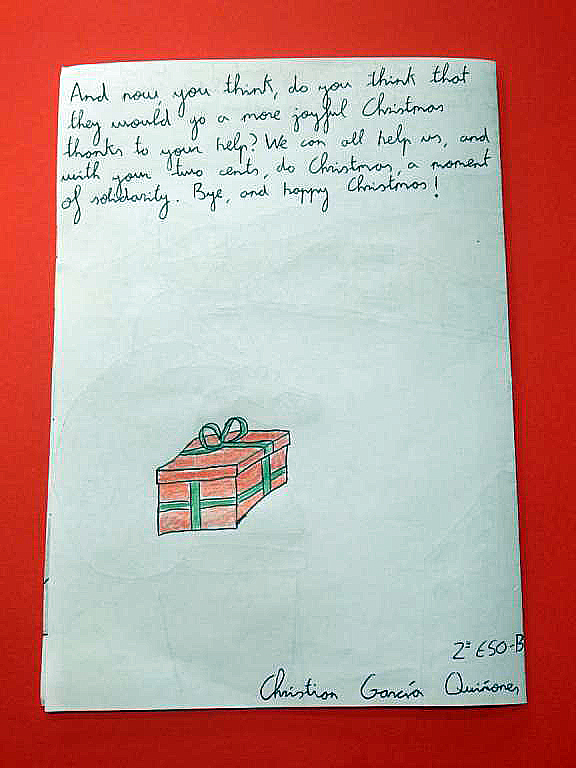 And now you think, do you think that
they would go a more joyful Christmas
thanks to your help? We can all help us, and
with your two cents, do Christmas, a moment
of solidarity. Bye, and happy Christmas!
2º ESO-B
Christian García Quiñones